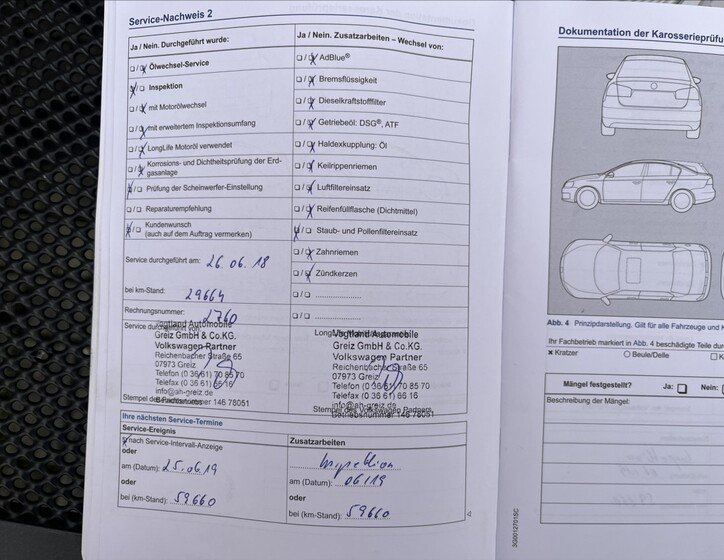 Service-Nachweis 2
Ja / Nein. Durchgeführt wurde:
❏/❏ Ölwechsel-Service
❏/❏ Inspektion
❏/❏ mit Motorölwechsel
❏/❏ mit erweitertem Inspektionsumfang
❏/❏ LongLife Motoröl verwendet
❏/❏ Korrosions- und Dichtheitsprüfung der Erd-
gasanlage
❏/❏ Prüfung der Scheinwerfer-Einstellung
❏/❏ Reparaturempfehlung
❏/❏ Kundenwunsch
(auch auf dem Auftrag vermerken)
Service durchgeführt am: 26.06.18
bei km-Stand: 29664
Rechnungsnummer: 2760
Service durchgeführt von:
Vogtland Automobile
Greiz GmbH & Co.KG.
Volkswagen Partner
Reichenbacher Straße 65
07973 Greiz
Telefon (0 36 61) 70 85 70
Telefax (0 36 61) 66 16
info@ah-greiz.de
Stempel des
146 78051
Ja / Nein. Zusatzarbeiten – Wechsel von:
❏/❏ AdBlue®
❏/❏ Bremsflüssigkeit
❏/❏ Dieselkraftstofffilter
❏/❏ Getriebeöl: DSG®, ATF
❏/❏ Haldexkupplung: Öl
❏/❏ Keilrippenriemen
❏/❏ Luftfiltereinsatz
❏/❏ Reifenfüllflasche (Dichtmittel)
❏/❏ Staub- und Pollenfiltereinsatz
❏/❏ Zahnriemen
❏/❏ Zündkerzen
❏/❏ ....................
❏/❏ ....................
Vogtland Automobile
Greiz GmbH & Co.KG.
Volkswagen Partner
Reichenbacher Straße 65
07973 Greiz
Telefon (0 36 61) 70 85 70
Telefax (0 36 61) 66 16
info@ah-greiz.de
Stempel des Volkswagen Partners
Betriebsnummer 146 78051
Ihre nächsten Service-Termine
Service-Ereignis
nach Service-Intervall-Anzeige
oder
am (Datum): 25.06.19
oder
bei (km-Stand): 59660
Zusatzarbeiten
Inspektion
am (Datum): 06/19
oder
bei (km-Stand): 59660
Dokumentation der Karosserieprüfu
Abb. 4 Prinzipdarstellung. Gilt für alle Fahrzeuge und
Ihr Fachbetrieb markiert in Abb. 4 beschädigte Teile dur
× Kratzer ○ Beule/Delle ❏ K
Mängel festgestellt? Ja: ❏ Nein:
Beschreibung der Mängel:
3G0012701SC